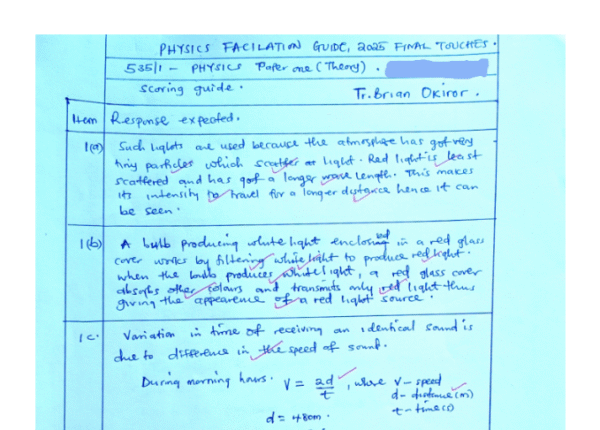 PHYSICS FACILATION GUIDE, 2025 FINAL TOUCHES.
535/1 - PHYSICS Paper one (Theory).
Scoring guide.
Tr. Brian Okiror.
Item Response expected.
1(a) Such lights are used because the atmosphere has got very
tiny particles which scatter light. Red light is least
scattered and has got a longer wave length. This makes
its intensity to travel for a longer distance hence it can
be seen.
1(b) A bulb producing white light enclosed in a red glass
cover works by filtering white light to produce red light.
when the bulb produces white light, a red glass cover
absorbs other colours and transmits only red light thus
giving the appearence of a red light source.
1c. Variation in time of receiving an identical sound is
due to difference in the speed of sound.
During morning hours. V = 2d/t, where V - speed
d - distance (m)
t - time (s)
d = 480m.